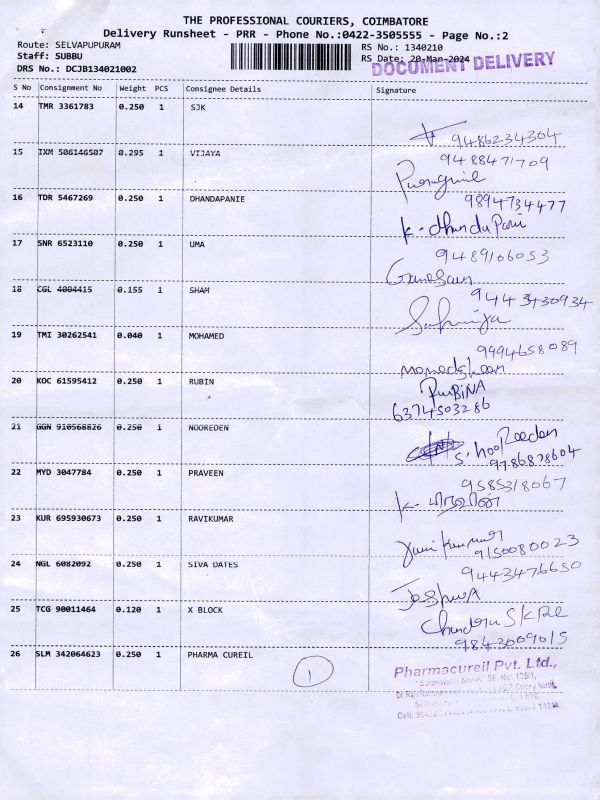 THE PROFESSIONAL COURIERS, COIMBATORE
Delivery Runsheet - PRR - Phone No.:0422-3505555 - Page No.:2
Route: SELVAPUPURAM
RS No.: 1340210
Staff: SUBBU
RS Date: 20-Mar-2024
DOCUMENT DELIVERY
DRS No.: DCJB134021002
S No Consignment No Weight PCS Consignee Details Signature
14 TMR 3361783 0.250 1 SJK
9486234304
15 IXM 506146507 0.295 1 VIJAYA
9488471709
16 TDR 5467269 0.250 1 DHANDAPANIE
9894734477
K. dhanda Pani
17 SNR 6523110 0.250 1 UMA
9489106053
Ganesan
18 CGL 4004415 0.155 1 SHAM
9443430934
19 TMI 30262541 0.040 1 MOHAMED
9994658089
20 KOC 61595412 0.250 1 RUBIN
RUBINA
6374503286
21 GGN 910568826 0.250 1 NOOREDEN
S. nooReeden
9786878604
22 MYD 3047784 0.250 1 PRAVEEN
9585318067
23 KUR 695930673 0.250 1 RAVIKUMAR
9150080023
24 NGL 6082092 0.250 1 SIVA DATES
9443476650
Joshua
25 TCG 90011464 0.120 1 X BLOCK
9843009015
26 SLM 342064623 0.250 1 PHARMA CUREIL
1
Pharmacureil Pvt. Ltd.,